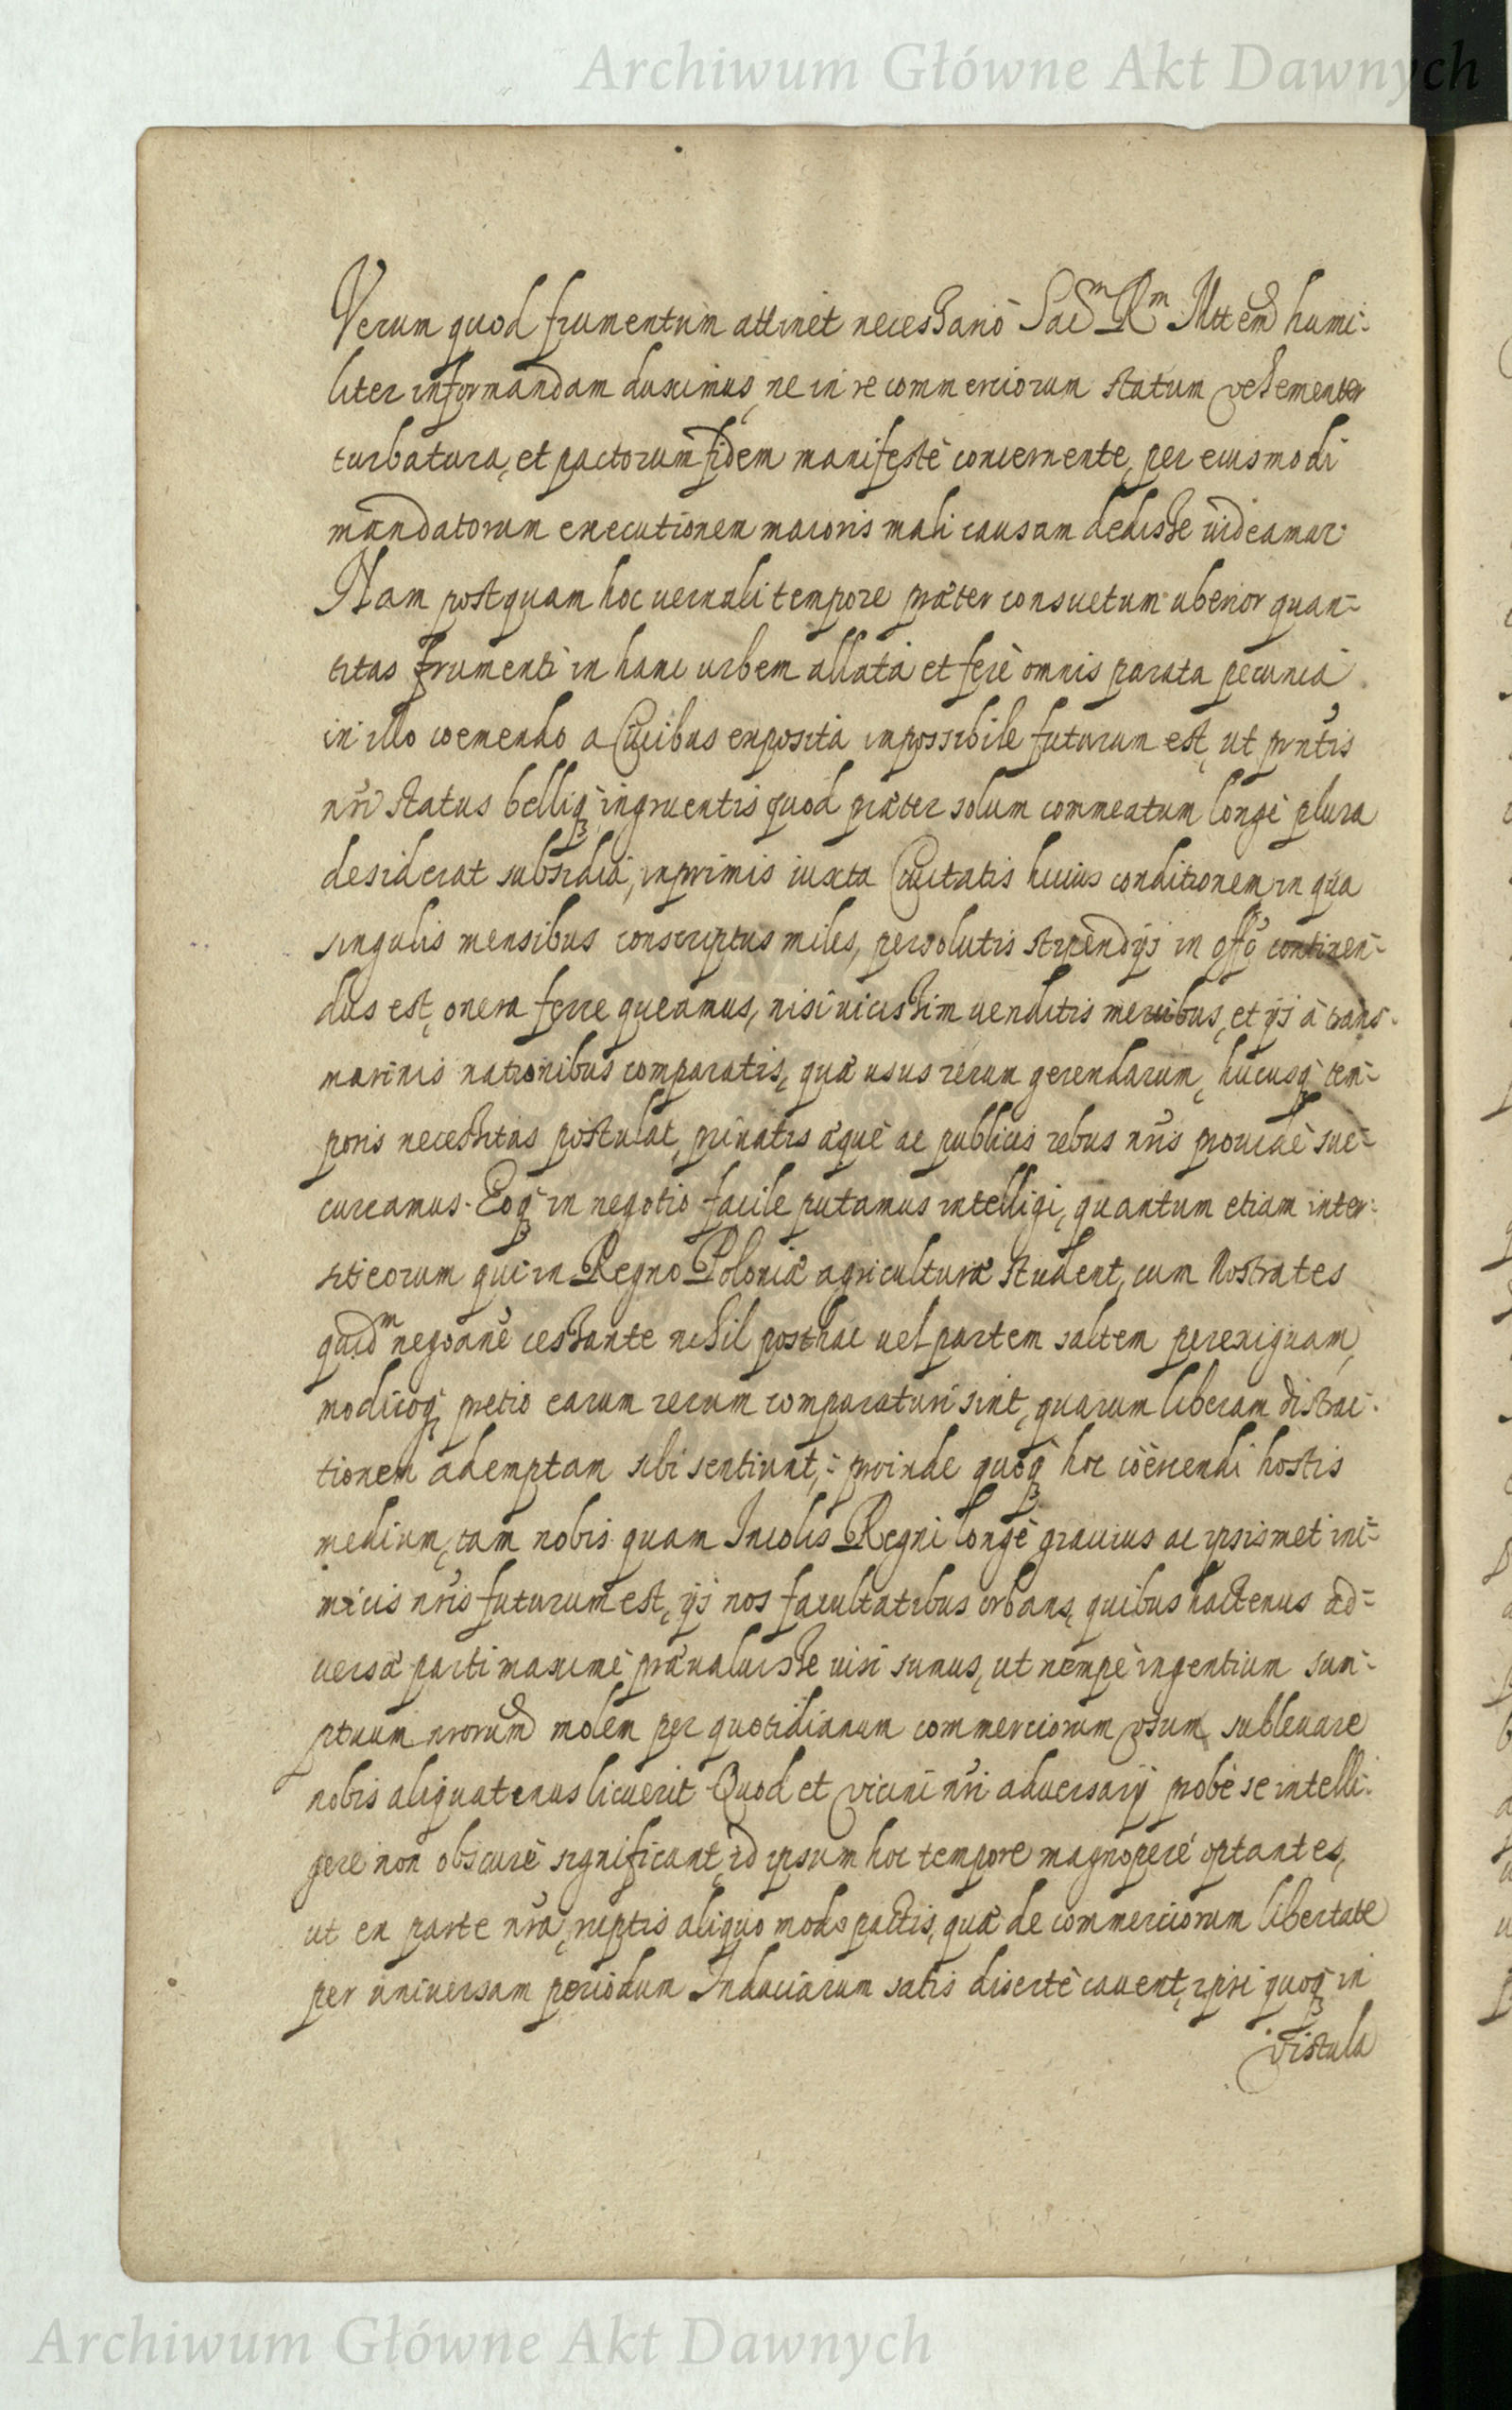 Archiwum Główne Akt Dawnych
Verum quod frumentum attinet necessario Sac^m R^m Mttem humi-
liter informandam duximus, ne in re commerciorum statum vehementer
turbatura, et pactorum fidem manifestè concernente, per eiusmodi
mandatorum executionem maioris mali causam dedisse uideamur.
Nam postquam hoc uernali tempore præter consuetum uberior quan-
titas frumenti in hanc urbem allata et ferè omnis parata pecunia
in illo coemendo a Ciuibus exposita impossibile futurum est, ut pñtis
nři status belliq₃ ingruentis quod præter solum commeatum longè plura
desiderat subsidia, inprimis iuxta Ciuitatis huius conditionem in qua
singulis mensibus conscriptus miles, persolutis stipendijs in offo continen-
dus est, onera ferre queamus, nisi uicissim uenditis mercibus, et ijs à trans-
marinis nationibus comparatis, quæ usus rerum gerendarum, hucusq₃ tem-
poris necessitas postulat, priuatis æquè ac publicis rebus nřis prouidè suc-
curramus. Eoq₃ in negotio facile putamus intelligi, quantum etiam inter-
sit eorum qui in Regno Poloniæ agriculturæ student, cum Nostrates
quid^m negoane cessante nihil posthac uel partem saltem perexiguam,
modicoq₃ pretio earum rerum comparaturi sint, quarum liberam distrac-
tionem ademptam sibi sentiunt, proinde quoq₃ hoc coërcendi hostis
medium, tam nobis quam Incolis Regni longè grauius ac ipsismet ini-
micis nřis futurum est, ijs nos facultatibus orbans, quibus hactenus ad-
uersæ parti maximè præualuisse uisi sumus, ut nempè ingentium sum-
ptuum nrorum molem per quotidianum commerciorum vsum subleuare
nobis aliquatenus licuerit. Quod et vicini nři aduersarij probè se intelli-
gere non obscurè significant, id ipsum hoc tempore magnoperè optantes,
ut ex parte nřa, ruptis aliquo modo pactis, quæ de commerciorum libertate
per uniuersam periodum Induciarum satis disertè cauent, ipsi quoq₃ in
Vistula
Archiwum Główne Akt Dawnych